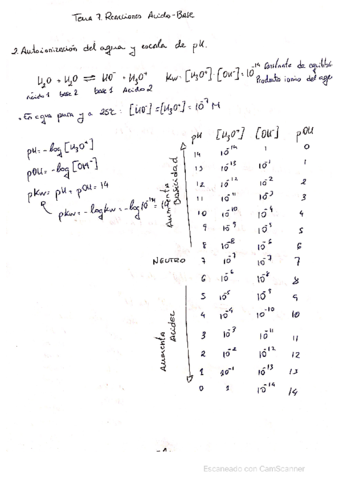 Tema 7. Reacciones Acido-Base
2. Autoionización del agua y escala de pH.
H₂O + H₂O ⇌ HO⁻ + H₃O⁺ Kw = [H₃O⁺]·[OH⁻] = 10⁻¹⁴ Constante de equilib
base 2 base 1 Acido 2 Producto ionico del agua
• En agua pura y a 25ºC: [HO⁻] = [H₃O⁺] = 10⁻⁷ M
pH [H₃O⁺] [OH⁻] pOH
pH = -log [H₃O⁺]
pOH = -log [OH⁻]
pKw = pH + pOH = 14
pKw = -log Kw = -log 10⁻¹⁴ =
Aumenta Basicidad
14 10⁻¹⁴ 1 0
13 10⁻¹³ 10⁻¹ 1
12 10⁻¹² 10⁻² 2
11 10⁻¹¹ 10⁻³ 3
10 10⁻¹⁰ 10⁻⁴ 4
9 10⁻⁹ 10⁻⁵ 5
8 10⁻⁸ 10⁻⁶ 6
NEUTRO 7 10⁻⁷ 10⁻⁷ 7
6 10⁻⁶ 10⁻⁸ 8
5 10⁻⁵ 10⁻⁹ 9
4 10⁻⁴ 10⁻¹⁰ 10
Aumenta Acidez
3 10⁻³ 10⁻¹¹ 11
2 10⁻² 10⁻¹² 12
1 10⁻¹ 10⁻¹³ 13
0 1 10⁻¹⁴ 14
Escaneado con CamScanner